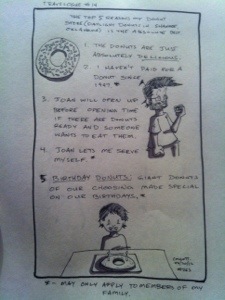 THE TOP 5 REASONS MY DONUT
STORE (DAYLIGHT DONUTS IN
OKLAHOMA) IS THE ABSOLUTE BEST
1. THE DONUTS ARE JUST
ABSOLUTELY DELICIOUS.
2. I HAVEN'T PAID FOR A
DONUT SINCE
*
3. JOAH WILL OPEN UP
BEFORE OPENING TIME
IF THERE ARE DONUTS
READY AND SOMEONE
WANTS TO EAT THEM.
4. JOAH LETS ME SERVE
MYSELF.*
5. BIRTHDAY DONUTS. GIANT DONUTS
OF OUR CHOOSING MADE SPECIAL
ON OUR BIRTHDAYS.*
* - MAY ONLY APPLY TO MEMBERS OF MY
FAMILY.